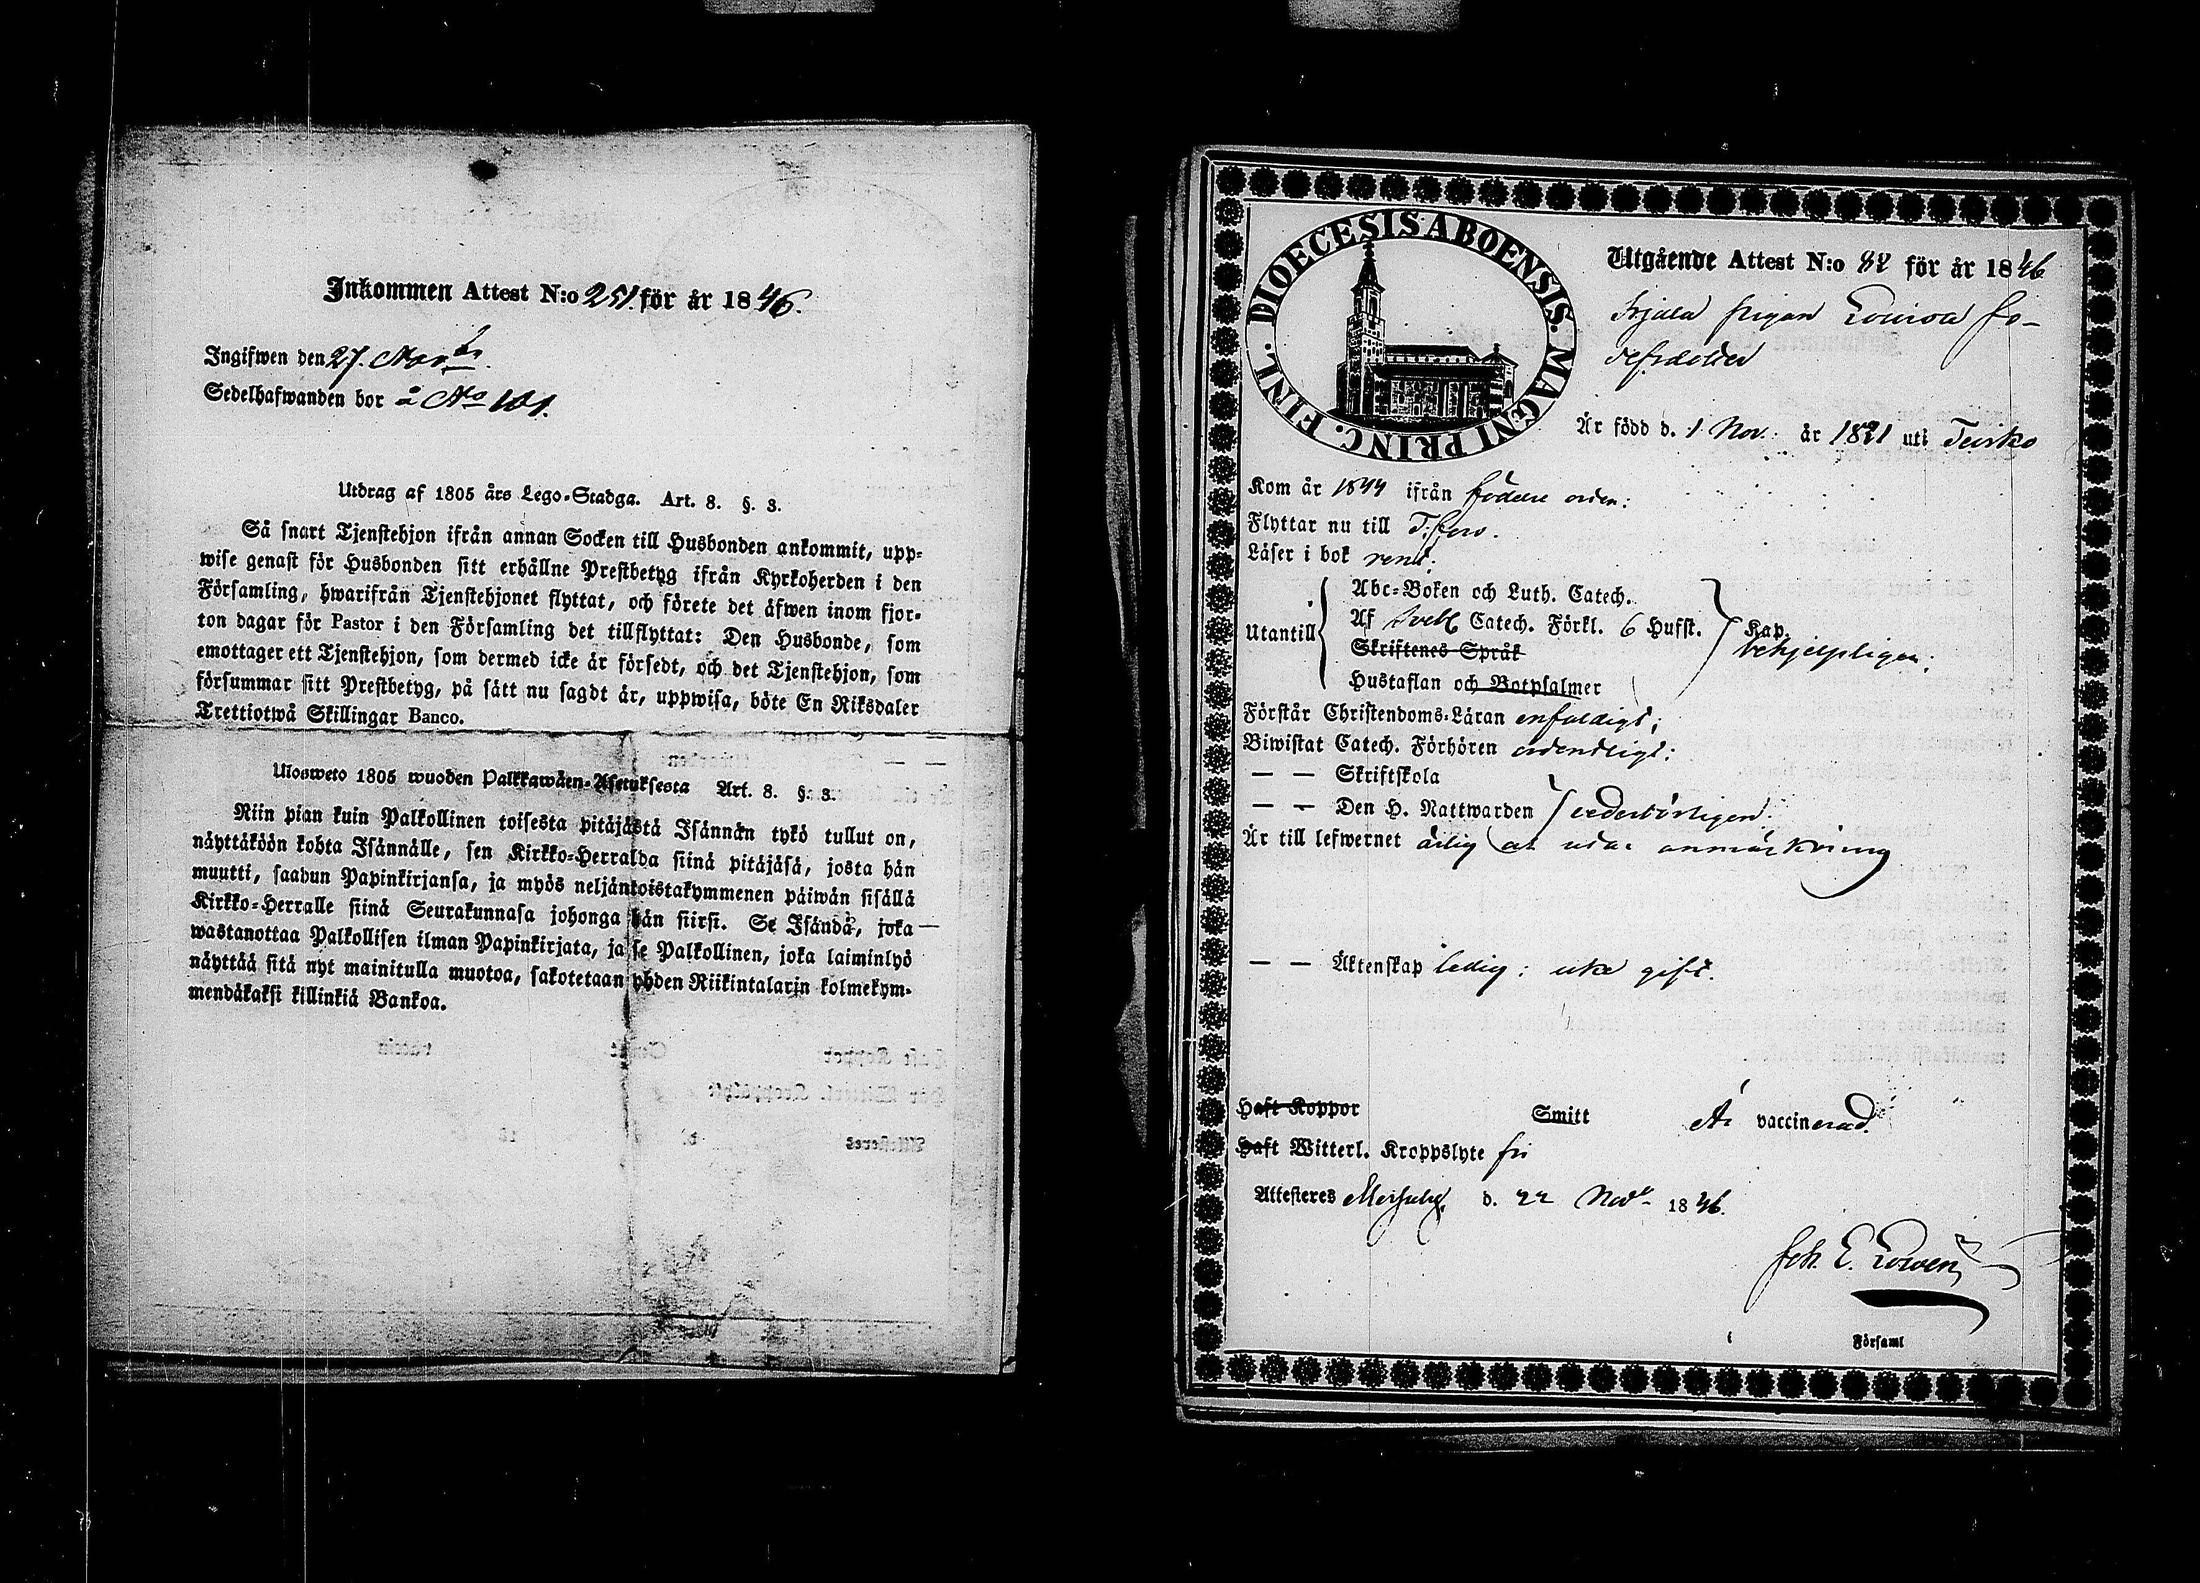 Inkommen Attest N:o 251. för år 1846.
Ingifwen den 27. Novbr.
Sedelhafwanden bor å No 101.
Utdrag af 1805 års Lego-Stadga. Art. 8. §. 3.
Så snart Tjenstehjon ifrån annan Socken till Husbonden ankommit, upp-
wise genast för Husbonden sitt erhållne Prestbetyg ifrån Kyrkoherden i den
Församling, hwarifrån Tjenstehjonet flyttat, och förete det äfwen inom fjor-
ton dagar för Pastor i den Församling det tillflyttat: Den Husbonde, som
emottager ett Tjenstehjon, som dermed icke är försedt, och det Tjenstehjon, som
försummar sitt Prestbetyg, på sätt nu sagdt är, uppwisa, böte En Riksdaler
Trettiotwå Skillingar Banco.
Ulosweto 1805 wuoden Palkkawäen-Asetuksesta Art. 8. §. 3.
Niin pian kuin Palkollinen toisesta pitäjästä Isännän tykö tullut on,
näyttäköön kohta Isännälle, sen Kirkko-Herralda siinä pitäjäsä, josta hän
muutti, saadun Papinkirjansa, ja myös neljäntoistakymmenen päiwän sisällä
Kirkko-Herralle siinä Seurakunnasa johonga hän siirsi. Se Isändä, joka
wastanottaa Palkollisen ilman Papinkirjata, ja se Palkollinen, joka laiminlyö
näyttää sitä nyt mainitulla muotoa, sakotetaan yhden Riikintalarin kolmekym-
mendäkaksi killinkiä Bankoa.
DIOECESIS ABOENSIS. MAGNI PRINC. FINL.
Utgående Attest N:o 82 för år 1846
pigan Lovisa Jo-
sefsdotter
Är född d. 1 Nov. år 1821 uti Teisko
Kom år 1844 ifrån födelse orten:
Flyttar nu till T:fors.
Läser i bok rent:
Utantill
Abc-Boken och Luth. Catech.
Af Sveb. Catech. Förkl. 6 Hufst. Kap.
Skriftenes Språk
behjelpligen:
Hustaflan och Botpsalmer
Förstår Christendoms-Läran enfaldigt;
Biwistat Catech. Förhören ordentligt:
— — Skriftskola
— — Den H. Nattwarden vederbörligen.
Är till lefwernet ärlig och utan anmärkning
— — Äktenskap ledig: icke gift.
Haft Koppor Smitt Är vaccinerad.
Haft Witterl. Kroppslyte fri
Attesteres Messuby d. 22 Nov. 1846.
Joh. E.
Församl